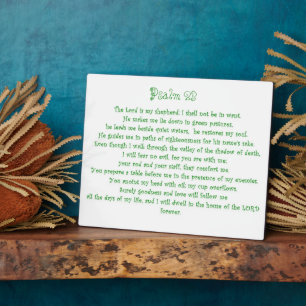 Psalm 23
The Lord is my shepherd; I shall not be in want.
He makes me lie down in green pastures,
he leads me beside quiet waters, he restores my soul.
He guides me in paths of righteousness for his name's sake.
Even though I walk through the valley of the shadow of death,
I will fear no evil, for you are with me;
your rod and your staff, they comfort me.
You prepare a table before me in the presence of my enemies.
You anoint my head with oil; my cup overflows.
Surely goodness and love will follow me
all the days of my life, and I will dwell in the home of the LORD
forever.